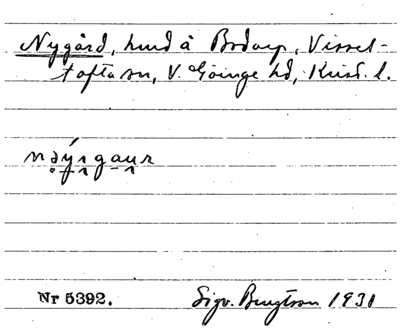 Nygård, hmd å Bråarp, Vissel-
tofta sn, V. Göinge hd, Krist. l.
Nr 5392. Sigv. Bengtson 1931